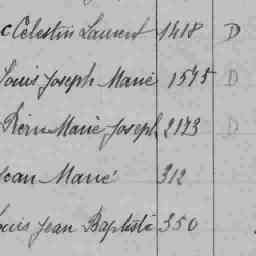 c Célestin Laurent 1418 D
Louis Joseph Marie 1575 D
Pierre Marie Joseph 2173 D
Jean Marie 312
Louis Jean Baptiste 350